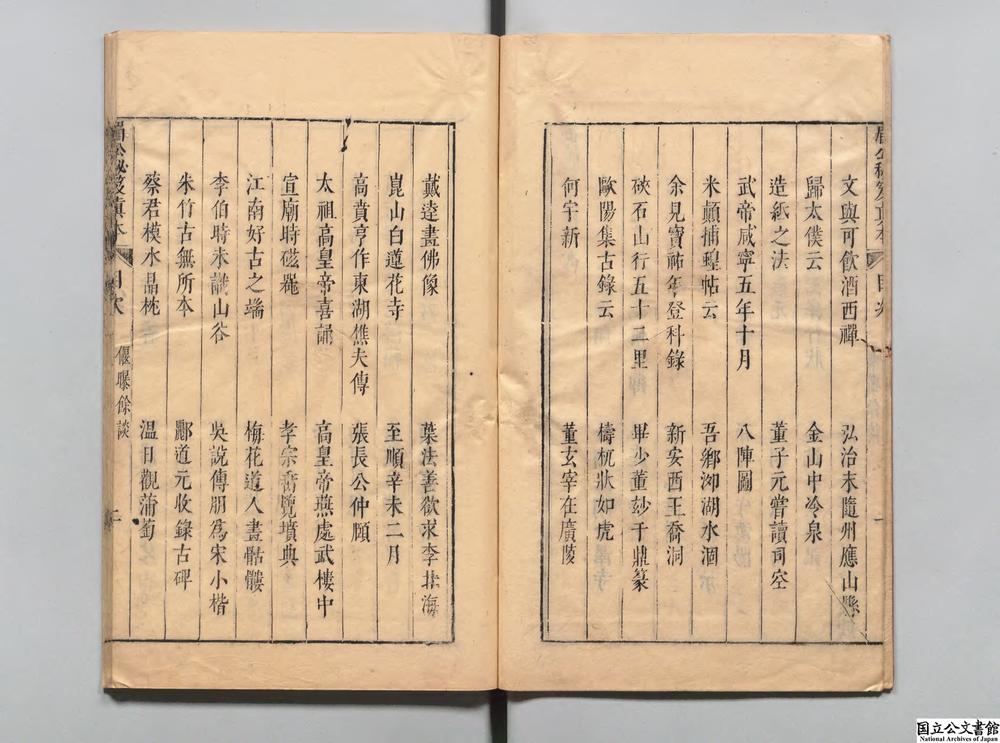 文與可飲酒西禪　弘治末隨州應山縣
歸太僕云　金山中冷泉
造紙之法　董子元嘗讀司空
武帝咸寧五年十月　八陣圖
米顛捕蝗帖云　吾鄉泖湖水涸
余見寳祐年登科錄　新安西王喬洞
硤石山行五十二里　畢少董玅于鼎篆
歐陽集古錄云　檮杌狀如虎
何宇新　董玄宰在廣陵
戴逵畫佛像　葉法善欲求李北海
崑山白蓮花寺　至順辛未二月
高賁亨作東湖樵夫傳　張長公仲願
太祖高皇帝喜誦　高皇帝燕處武樓中
宣廟時磁器　孝宗喬覽墳典
江南好古之端　梅花道人畫骷髏
李伯時未識山谷　吳說傅朋爲宋小楷
朱竹古無所本　酈道元收錄古碑
蔡君模水晶枕　温日觀蒲萄
眉公秘笈眞本　目次　偃曝餘談　二
国立公文書館
National Archives of Japan